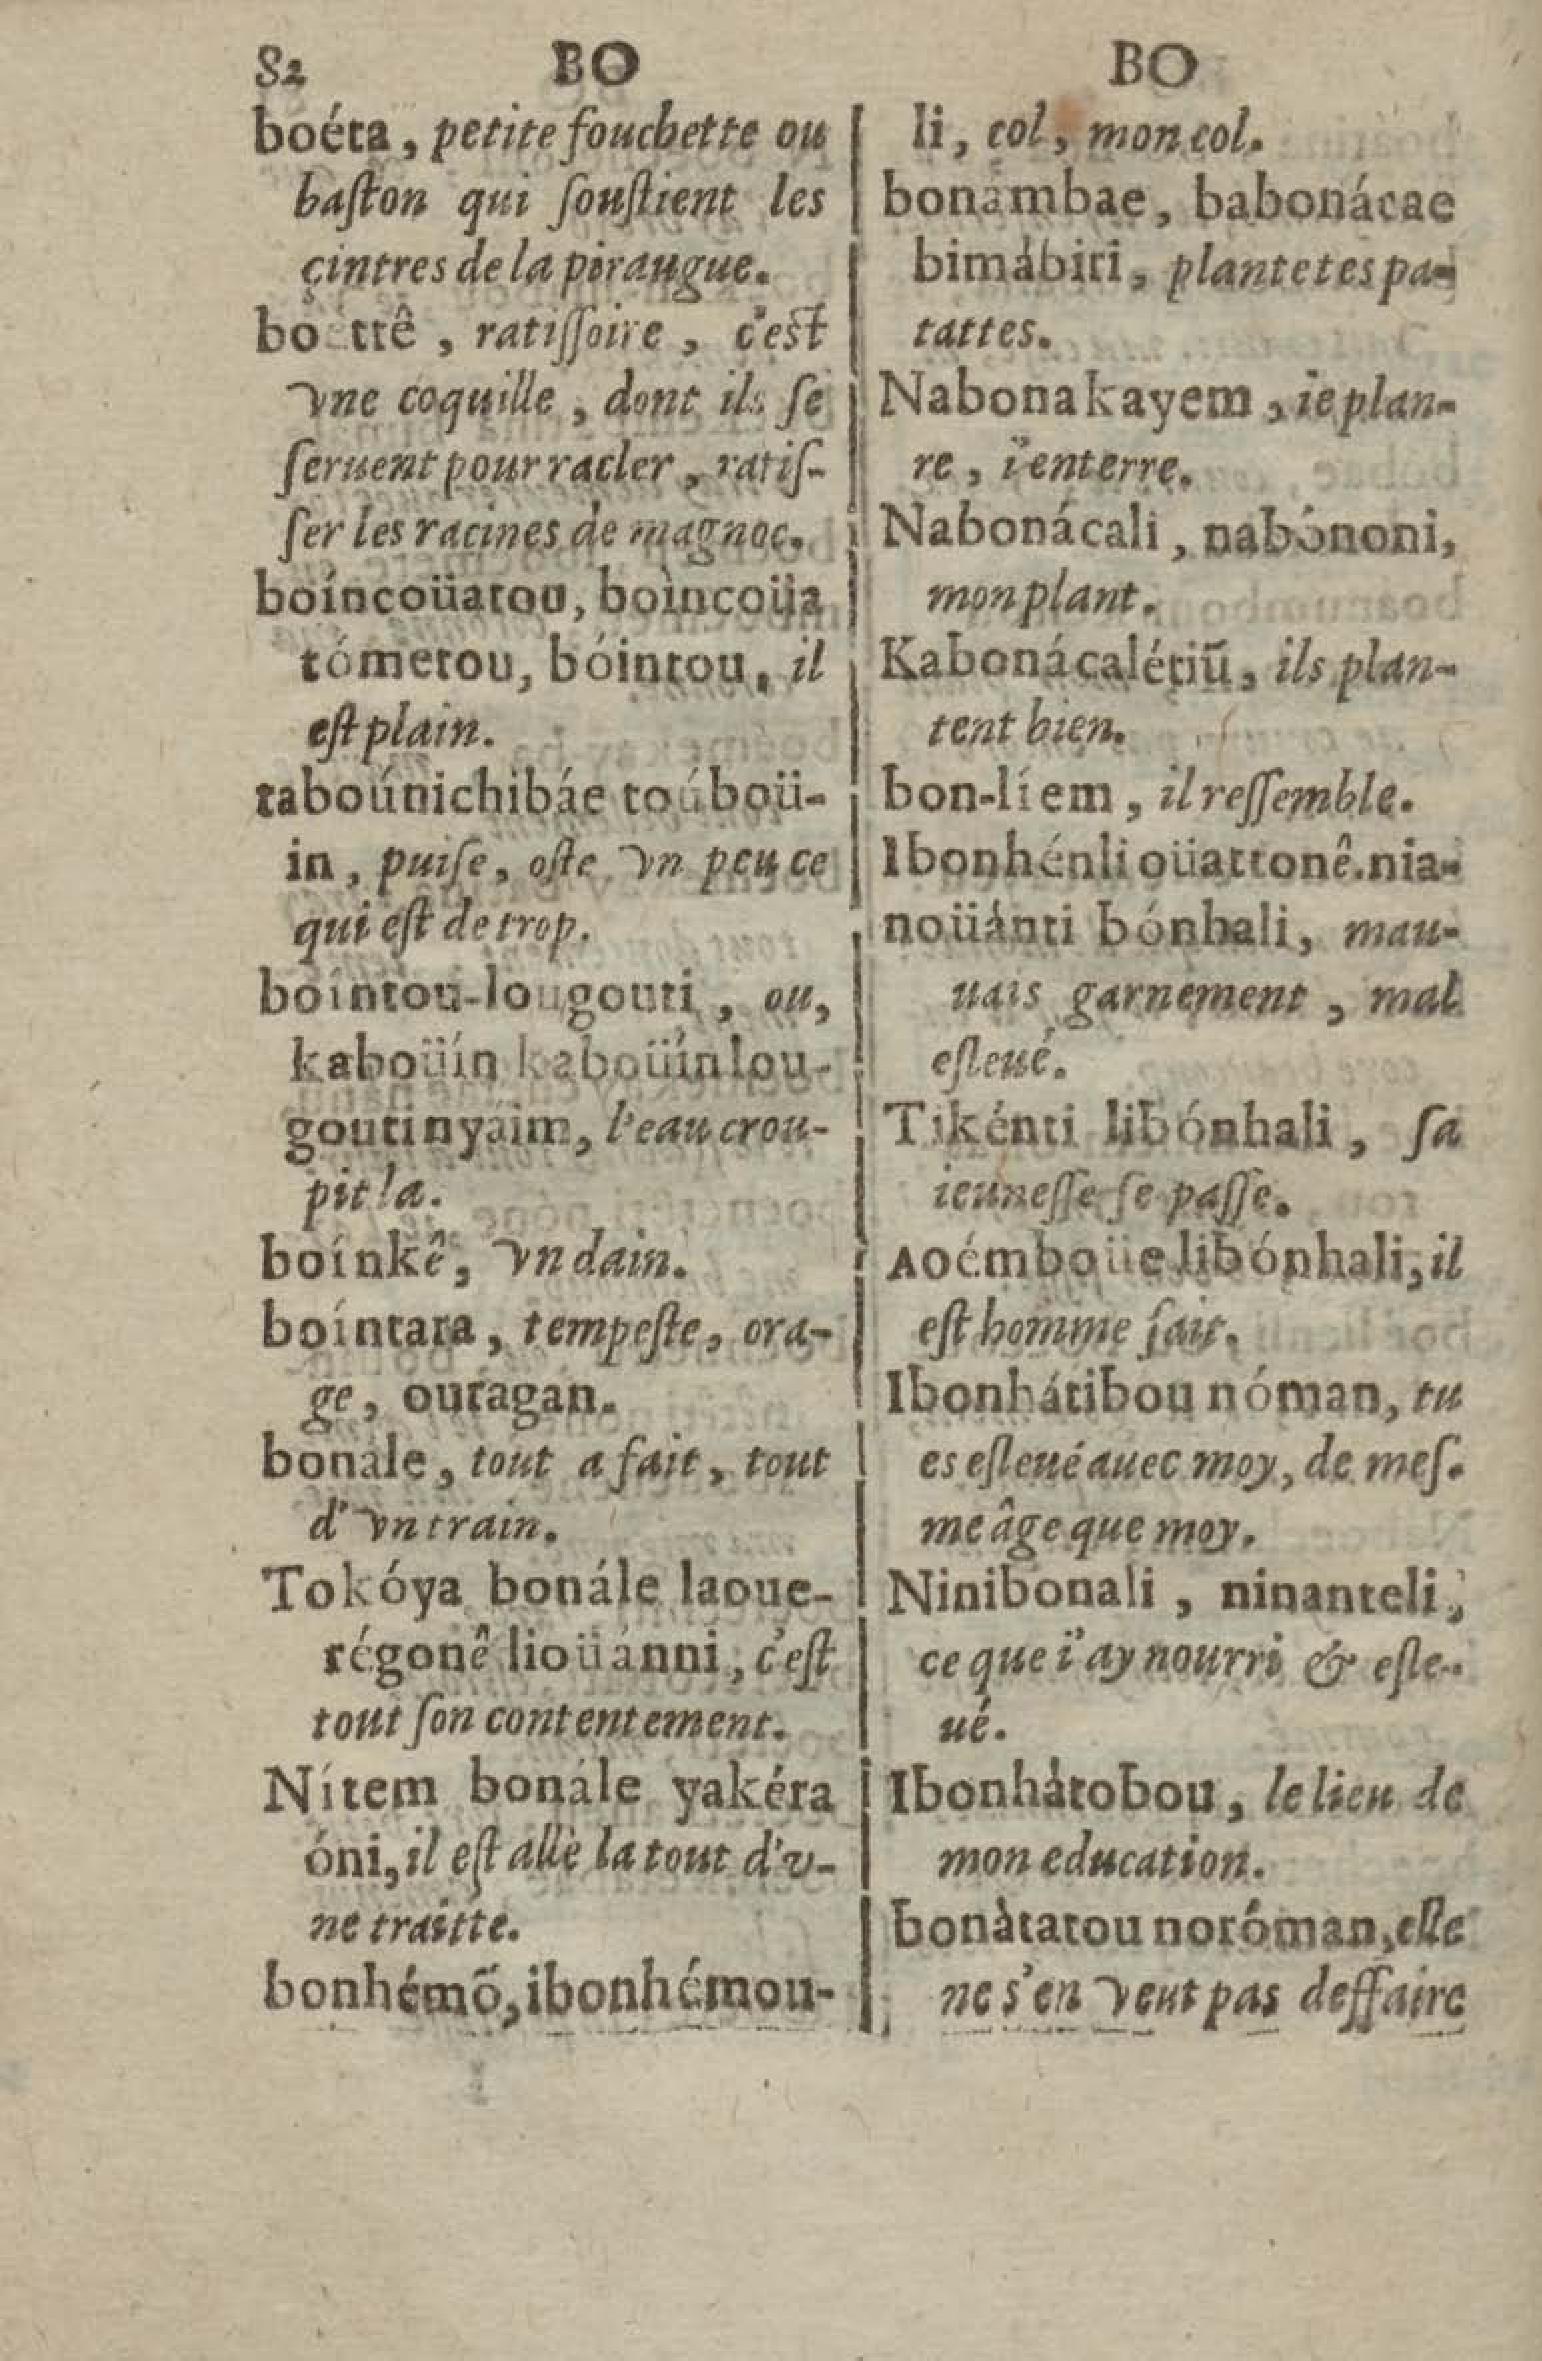 82 BO BO
boéta, petite fouchette ou
baſton qui ſouſtient les
çintres de la piraugue.
bo ttê, ratiſſoire, c'est
vne coquille, dont ils ſe
ſeruent pour racler, ratiſ-
ſer les racines de magnoc.
boíncoüatou, boìncoüa
tómetou, bóintou, il
eſt plain.
taboúnichibáe toúboü-
in, puiſe, oſte vn peu ce
qui eſt de trop.
bóintou-lougouti, ou,
kaboüín kaboüínlou-
goutinyáim, l'eau crou-
pit la.
boínkê, vn dain.
boíntara, tempeſte, ora-
ge, ouragan.
bonále, tout a fait, tout
d'vn train.
Tokóya bonále laoue-
régonê lioüánni, c'eſt
tout ſon contentement.
Nítem bonále yakéra
óni, il eſt allè la tout d'v-
ne traitte.
bonhémõ, ibonhémou-
li, col, mon col.
bonámbae, babonácae
bimábiri, plante tes pa-
tattes.
Nabonakayem, ie plan-
re, i'enterre.
Nabonácali, nabónoni,
mon plant.
Kabonácalétiũ, ils plan-
tent bien.
bon-líem, il reſſemble.
Ibonhénli oüattonê.nia-
noüánti bónhali, mau-
uais garnement, mal
eſleué.
Tikénti libónhali, ſa
ieuneſſe ſe paſſe.
Aoémboüe libónhali, il
eſt homme fait.
Ibonhátibou nóman, tu
es eſleué auec moy, de meſ-
me âge que moy.
Ninibonali, ninanteli,
ce que i'ay nourri & eſle-
ué.
Ibonhàtobou, le lieu de
mon education.
bonàtatou noróman, elle
ne s'en veut pas deffaire